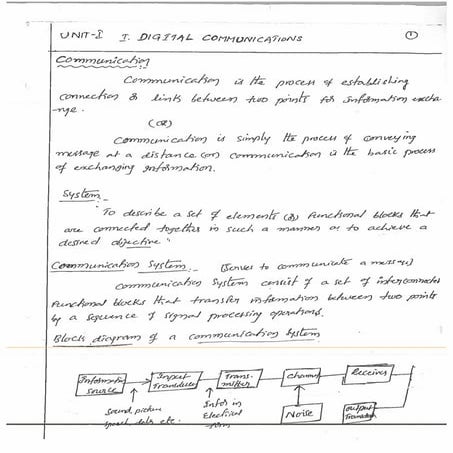 UNIT-I I. DIGITAL COMMUNICATIONS 1
Communication
Communication is the process of establishing
connection or links between two points for information excha
nge.
(or)
Communication is simply the process of conveying
message at a distance (or) communication is the basic process
of exchanging information.
System:-
"To describe a set of elements (or) functional blocks that
are connected together in such a manner as to achieve a
desired objective"
Communication System:- (Serves to communicate a message)
Communication system consist of a set of interconnected
functional blocks that transfer information between two points
by a sequence of signal processing operations.
Block diagram of a communication system
Information
source
Input
Transducer
Trans-
mitter
Channel
Receiver
Sound, picture
speech, data etc.
Infor in
Electrical
form
Noise
Output
Transducer